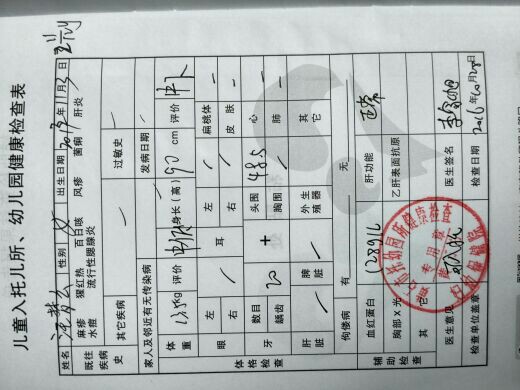 儿童入托儿所、幼儿园健康检查表
姓名 性别 女 出生日期 年11月3日
既往疾病史 麻疹 猩红热 百日咳 风疹 菌痢 肝炎
水痘 流行性腮腺炎
其它疾病 过敏史
家人及邻近有无传染病 发病日期
体格检查
体重 kg 评价 身长(高) 90 cm 评价
眼 左 耳 左 扁桃体
右 右 皮肤
牙 数目 20 头围 48.5 心
龋齿 胸围 肺
肝脏 脾脏 外生殖器 其它
佝偻病 有 无
辅助检查
血红蛋白 128g/L 肝功能 正常
胸部X光 乙肝表面抗原
其它
医生意见 医生签名
检查单位盖章 检查日期 2016年10月28日
专用章